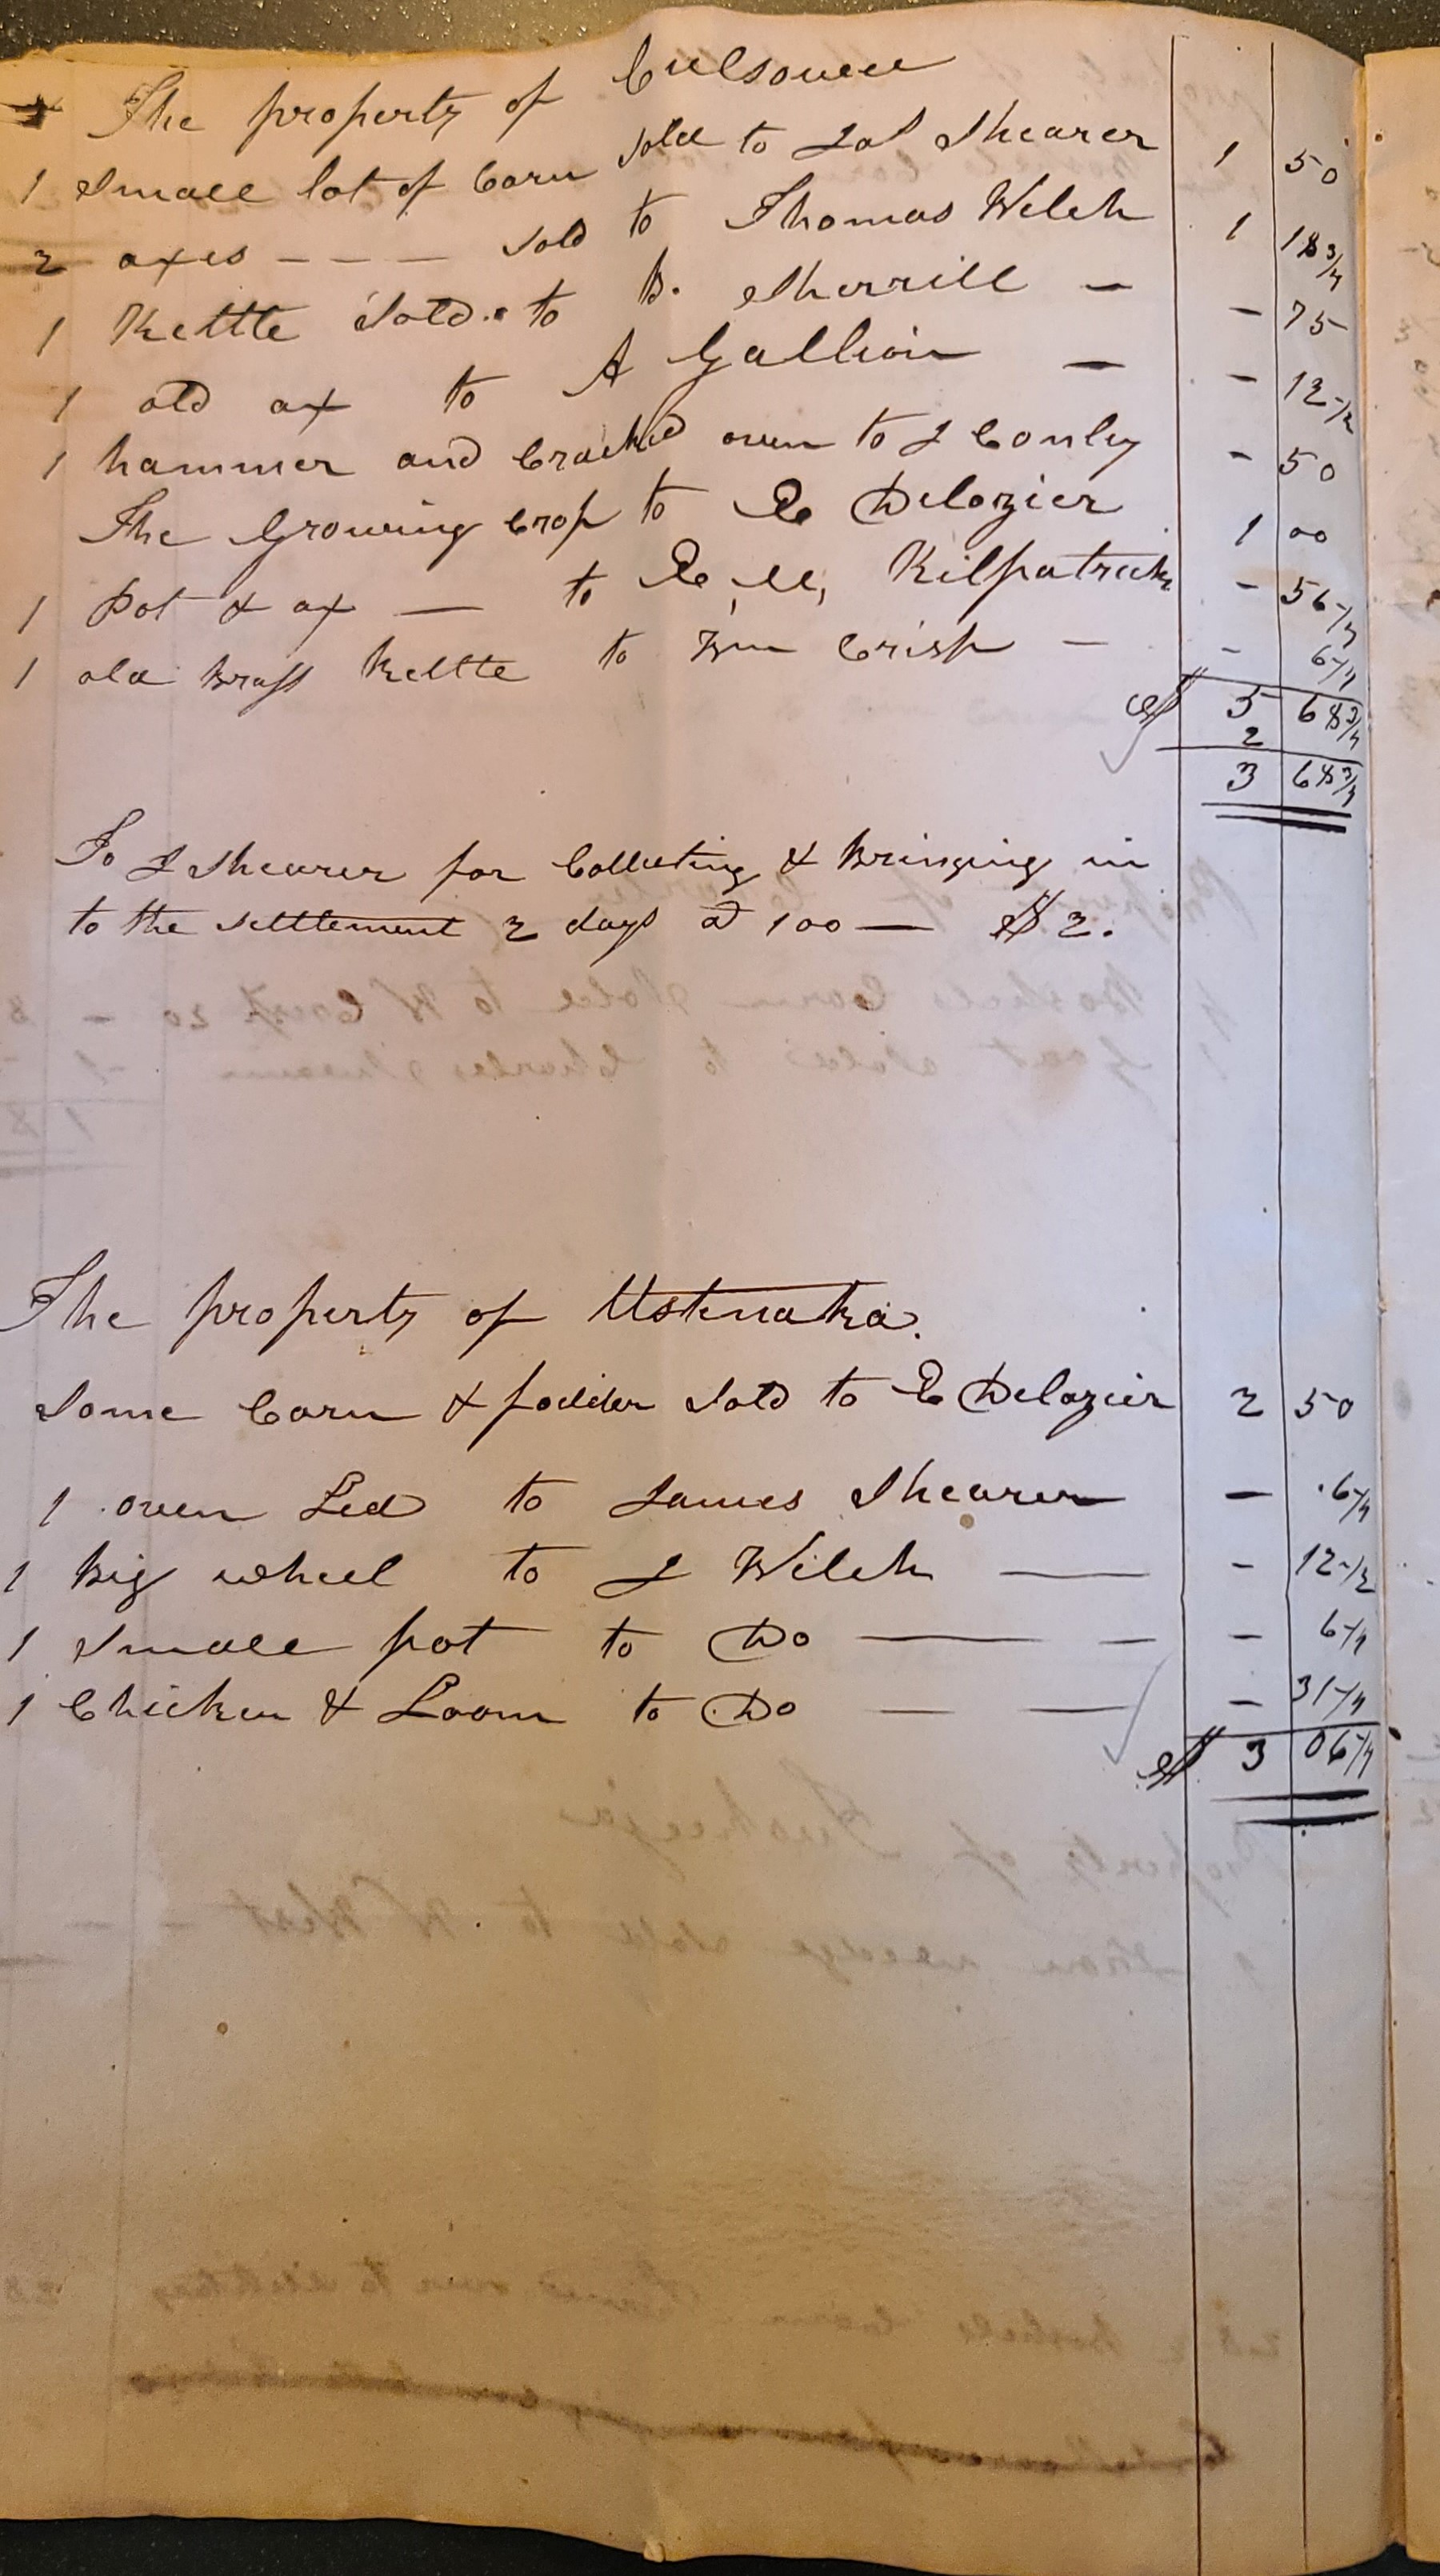 The property of Culsowee
1 Small lot of Corn sold to Jas Shearer 1 50
2 axes - - - sold to Thomas Welch 1 18 3/4
1 Kettle Sold to B. Sherrill - - 75
1 old ax to A Gallion - - 12 1/2
1 hammer and Cracked oven to J Conly - 50
The Growing Crop to E Delozier 1 00
1 Pot & ax - to E M, Kilpatrick - 56 1/4
1 old Brass Kettle to Wm Crisp - - 6 1/4
$ 5 68 3/4
2
3 68 3/4
To J Shearer for Collecting & Bringing in
to the settlement 2 days @ 100 - $ 2.
The property of Ustenaka.
Some Corn & fodder Sold to E Delozier 2 50
1 oven Led to James Shearer - 6 1/4
1 Big wheel to J Welch - - 12 1/2
1 Small pot to Do - - - 6 1/4
1 Chicken & Loom to Do - - - 31 1/4
$ 3 06 1/4